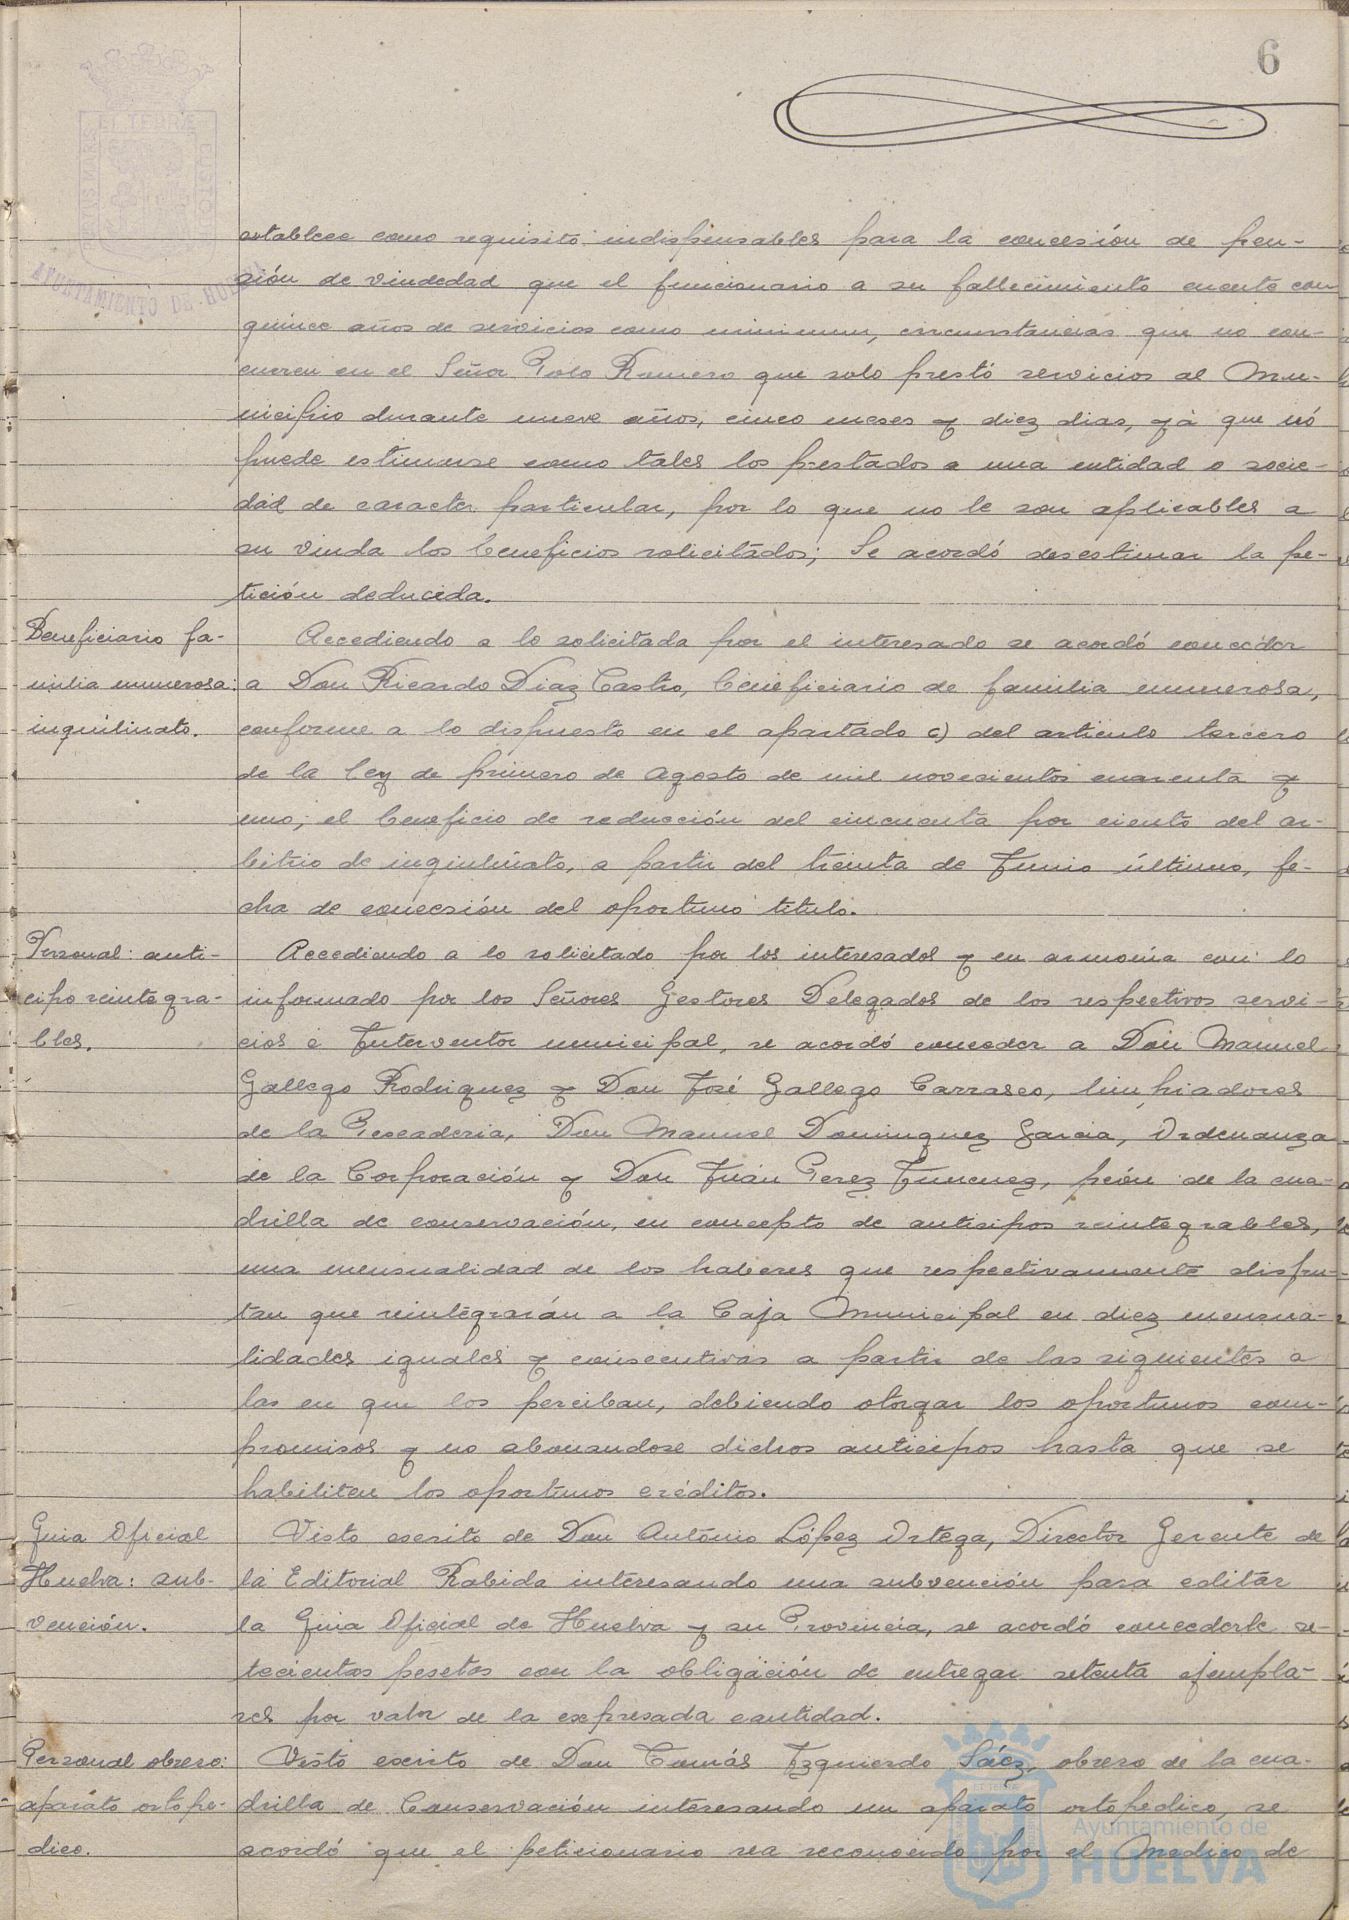 6
PORTUS MARIS ET TERRÆ CUSTODIA
AYUNTAMIENTO DE HUELVA
establece como requisito indispensables para la concesión de pen-
sión de viudedad que el funcionario a su fallecimiento cuente con
quince años de servicios como minimum, circunstancias que no con-
curren en el Señor Polo Romero que solo prestó servicios al Mu-
nicipio durante nueve años, cinco meses y diez dias, yà que nó
puede estimarse como tales los prestados a una entidad o socie-
dad de caracter particular, por lo que no le son aplicables a
su viuda los beneficios solicitados; Se acordó desestimar la pe-
tición deducida.
Beneficiario fa-
milia numerosa:
inquilinato.
Accediendo a lo solicitada por el interesado se acordó conceder
a Don Ricardo Diaz Castro, beneficiario de familia numerosa,
conforme a lo dispuesto en el apartado c) del articulo tercero
de la ley de primero de Agosto de mil novecientos cuarenta y
uno, el beneficio de reducción del cincuenta por ciento del ar-
bitrio de inquilinato, a partir del treinta de Junio último, fe-
cha de concesión del oportuno titulo.
Personal: anti-
cipo reintegra-
bles.
Accediendo a lo solicitado por los interesados y en armonia con lo
informado por los Señores Gestores Delegados de los respectivos servi-
cios é Interventor municipal, se acordó conceder a Don Manuel
Gallego Rodriguez y Don José Gallego Carrasco, limpiadores
de la Pescaderia, Don Manuel Dominguez Garcia, Ordenanza
de la Corporación y Don Juan Perez Jimenez, peón de la cua-
drilla de conservación, en concepto de anticipos reintegrables,
una mensualidad de los haberes que respectivamente disfru-
tan que reintegrarán a la Caja Municipal en diez mensua-
lidades iguales y consecutivas a partir de las siguientes a
las en que los perciban, debiendo otorgar los oportunos com-
promisos y no abonandose dichos anticipos hasta que se
habiliten los oportunos créditos.
Guia Oficial
Huelva: sub-
vención.
Visto escrito de Don António López Ortega, Director Gerente de
la Editorial Rabida interesando una subvención para editar
la Guia Oficial de Huelva y su Provincia, se acordó concederle se-
tecientas pesetas con la obligación de entregar setenta ejempla-
res por valor de la expresada cantidad.
Personal obrero:
aparato ortope-
dico.
Visto escrito de Don Tomás Izquierdo Sáez, obrero de la cua-
drilla de Conservación interesando un aparato ortopedico, se
acordó que el peticionario sea reconocido por el Medico de
Ayuntamiento de
HUELVA